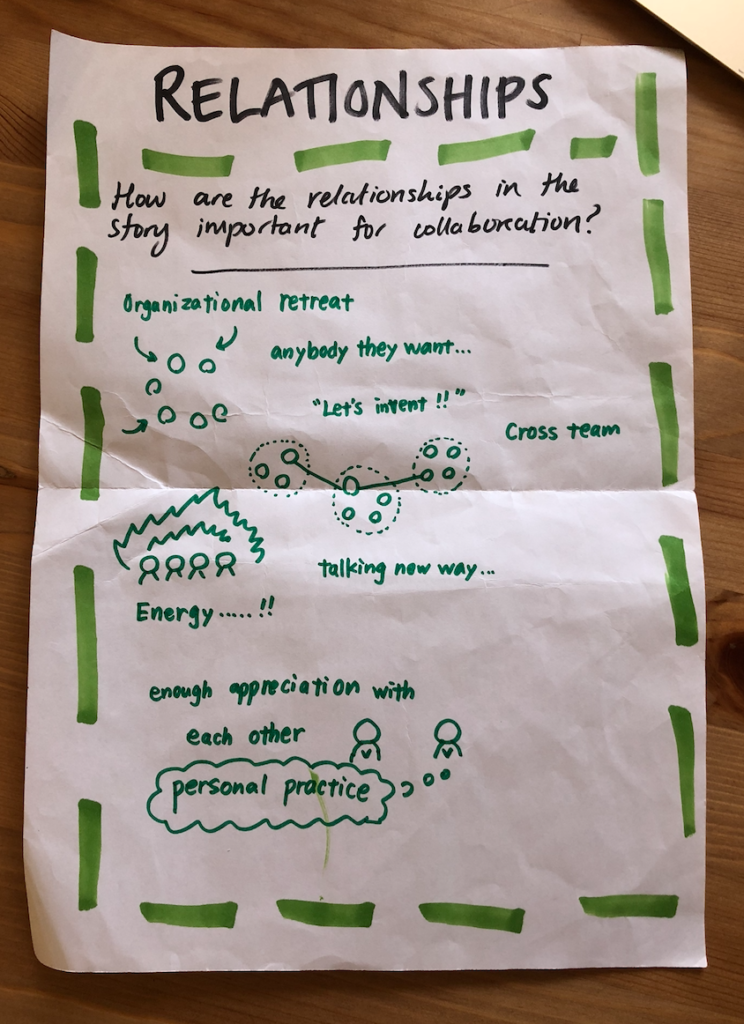 RELATIONSHIPS
How are the relationships in the
story important for collaboration?
Organizational retreat
anybody they want...
"Let's invent !!"
Cross team
talking new way...
Energy.....!!
enough appreciation with
each other
personal practice